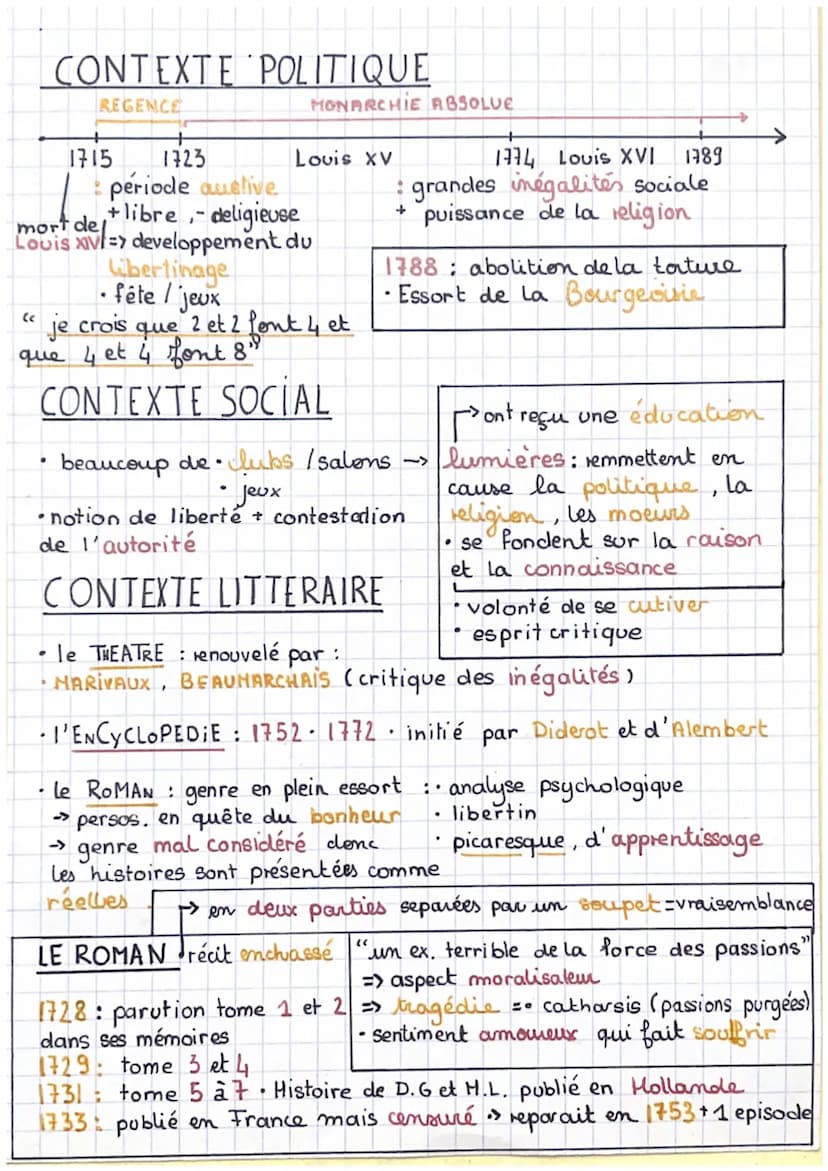 CONTEXTE POLITIQUE
REGENCE MONARCHIE ABSOLUE
1715 1723 Louis XV 1774 Louis XVI 1789
: période austive
+ libre , - deligieuse
mort de Louis XIV
=> developpement du
libertinage
• fête / jeux
"je crois que 2 et 2 font 4 et
que 4 et 4 font 8"
: grandes inégalités sociale
+ puissance de la religion
1788 : abolition de la torture
• Essort de la Bourgeoisie
CONTEXTE SOCIAL
• beaucoup de • clubs / salons →
• jeux
• notion de liberté + contestation
de l'autorité
→ ont reçu une éducation
lumières : remmettent en
cause la politique, la
religion, les moeurs
• se fondent sur la raison
et la connaissance
• volonté de se cutiver
• esprit critique
CONTEXTE LITTERAIRE
• le THEATRE : renouvelé par :
• MARIVAUX, BEAUMARCHAIS (critique des inégalités)
• l'ENCYCLOPEDIE : 1752 • 1772 • initié par Diderot et d'Alembert
• le ROMAN : genre en plein essort : • analyse psychologique
→ persos. en quête du bonheur • libertin
→ genre mal considéré donc • picaresque, d'apprentissage
les histoires sont présentées comme
réelles
→ en deux parties separées par un soupet = vraisemblance
LE ROMAN récit enchassé
"un ex. terrible de la force des passions"
=> aspect moralisateur
=> tragédie =• catharsis (passions purgées)
• sentiment amoureux qui fait souffrir
1728 : parution tome 1 et 2
dans ses mémoires
1729 : tome 3 et 4
1731 : tome 5 à 7 • Histoire de D.G et M.L. publié en Hollande
1733 : publié en France mais censuré → reparait en 1753 + 1 episode